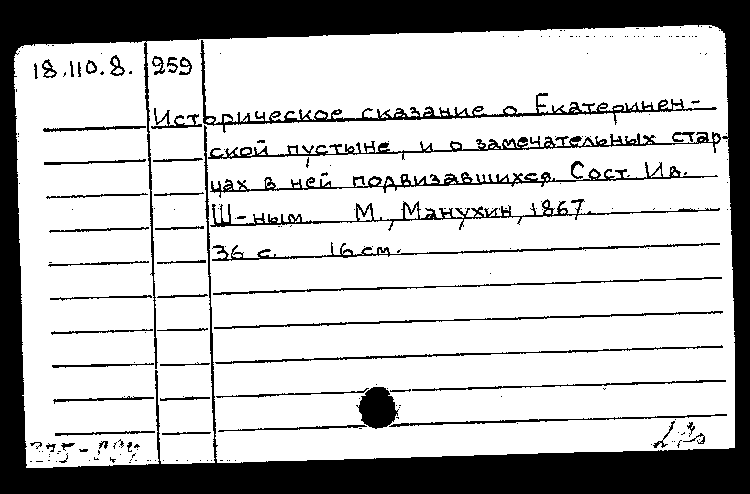 18.110.8. 259
Историческое сказание о Екатеринен-
ской пустыне, и о замечательных стар-
цах в ней подвизавшихся. Сост. Ив.
Ш-ным. М., Манухин, 1867.
36 с. 16 см.